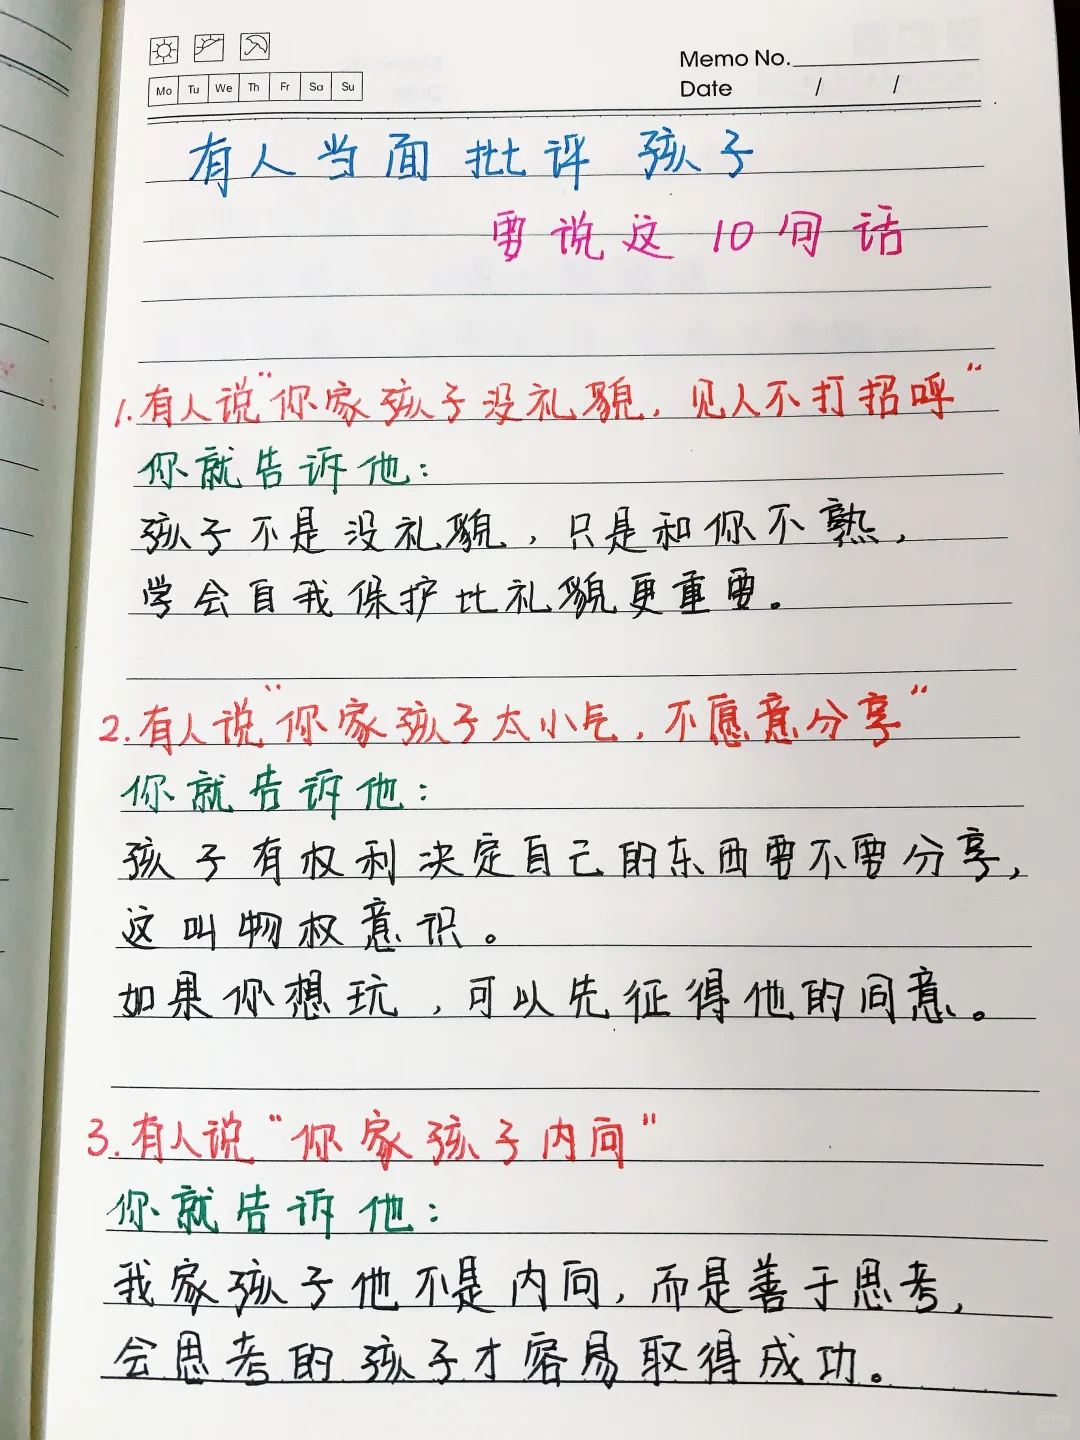 Mo Tu We Th Fr Sa Su
Memo No.
Date / /
有人当面批评孩子
要说这10句话
1.有人说“你家孩子没礼貌，见人不打招呼”
你就告诉他：
孩子不是没礼貌，只是和你不熟，
学会自我保护比礼貌更重要。
2.有人说“你家孩子太小气，不愿意分享”
你就告诉他：
孩子有权利决定自己的东西要不要分享，
这叫物权意识。
如果你想玩，可以先征得他的同意。
3.有人说“你家孩子内向”
你就告诉他：
我家孩子他不是内向，而是善于思考，
会思考的孩子才容易取得成功。